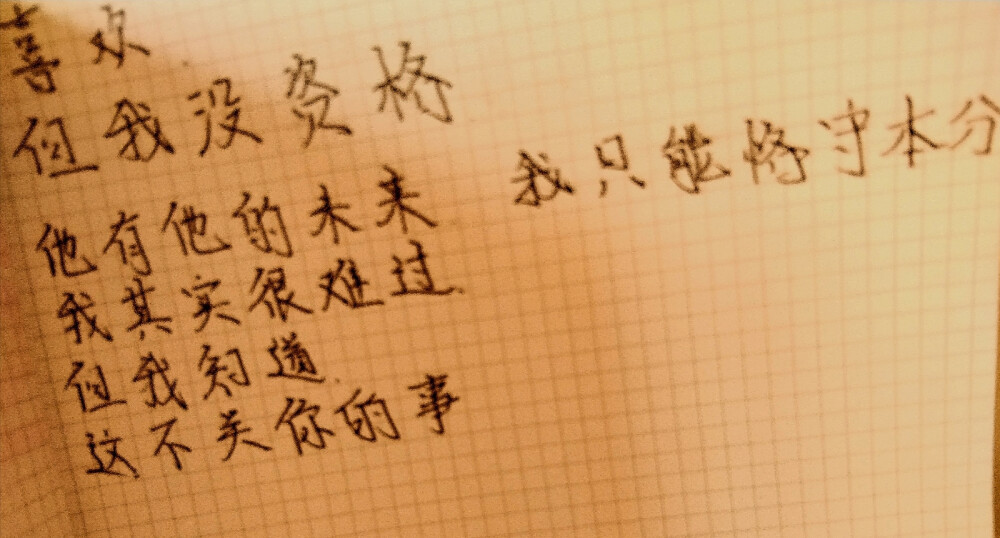 喜欢
但我没资格
他有他的未来 我只能恪守本分
我其实很难过
但我知道
这不关你的事